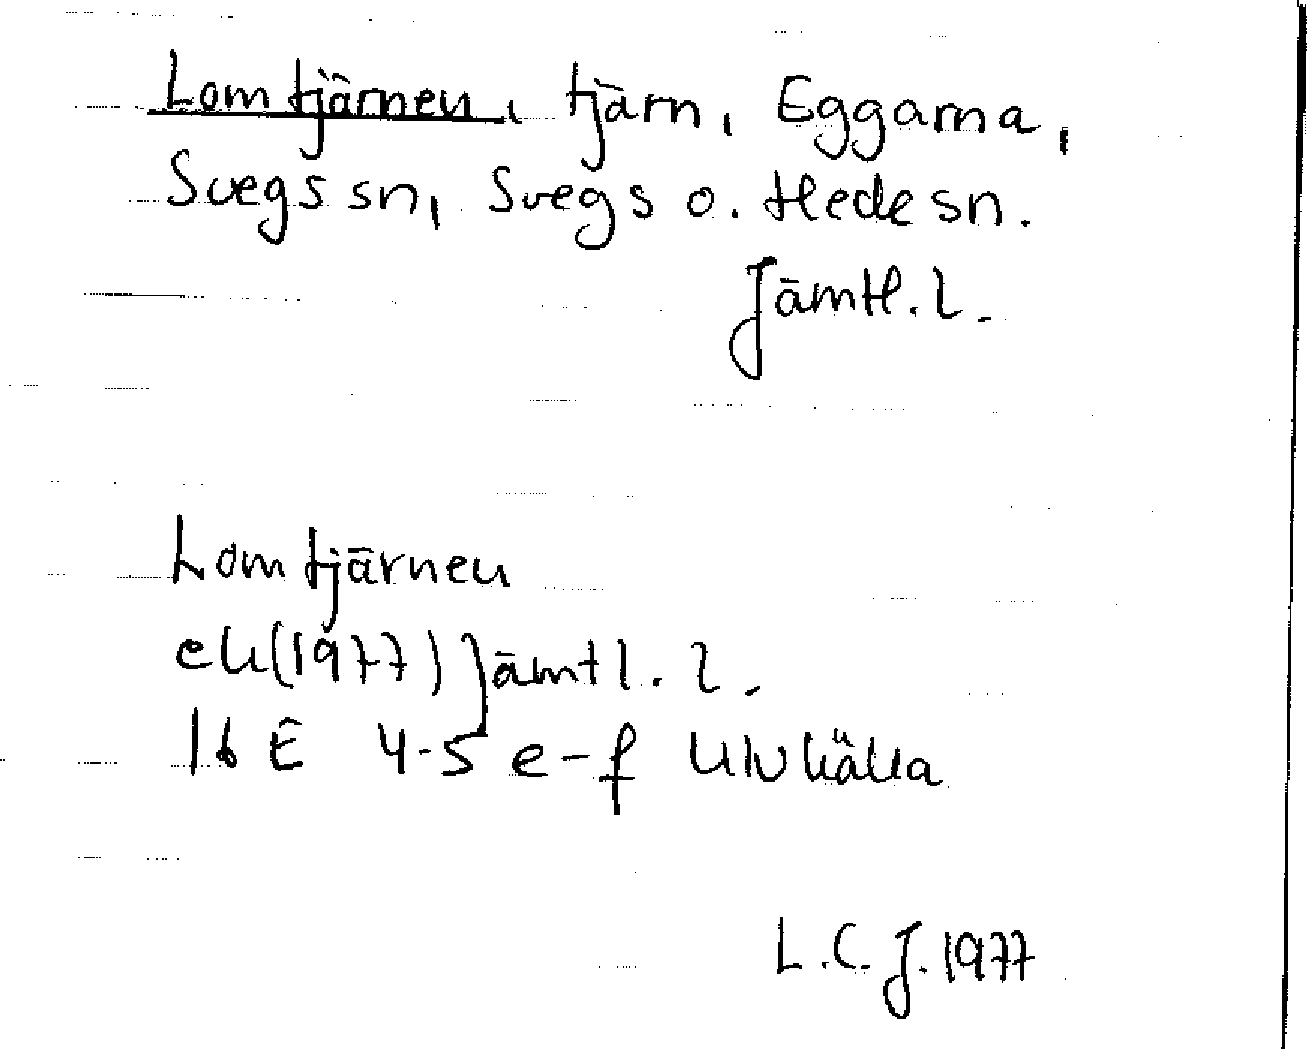 Lomtjärnen, tjärn, Eggarna,
Svegs sn, Svegs o. Hede sn.
Jämtl. l.
Lomtjärnen
ek(1977) Jämtl. l.
16 E 4-5 e-f Ulvkälla
L.C.J. 1977